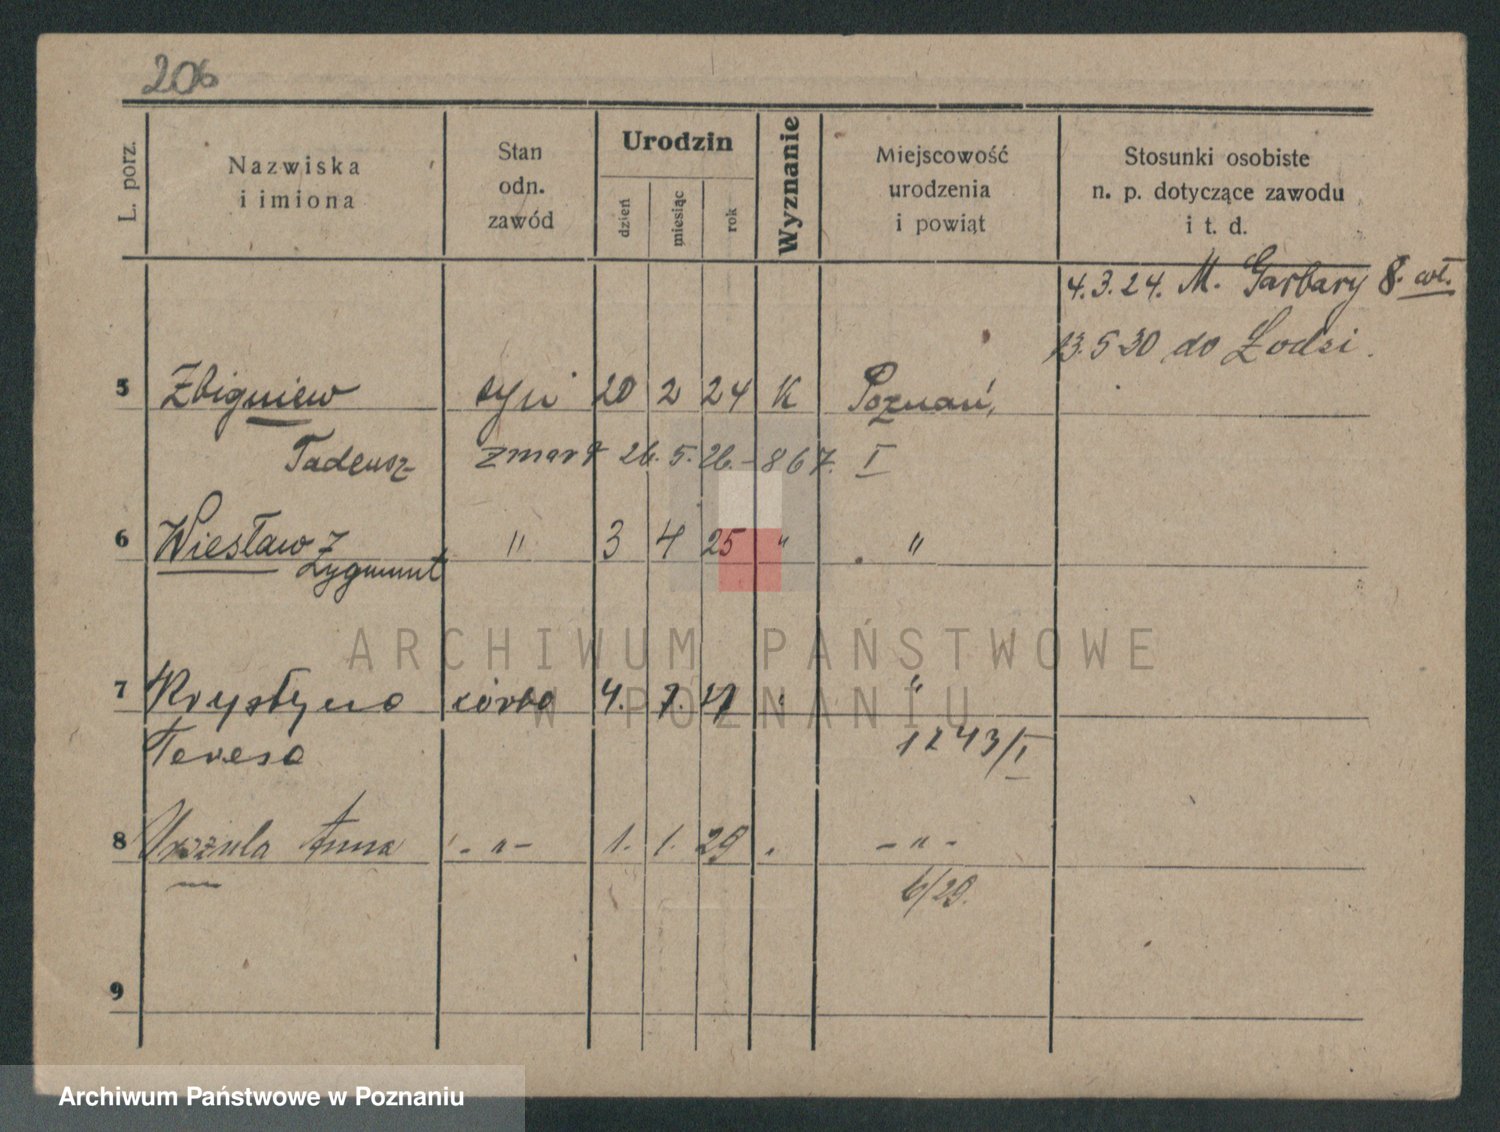 206
L. porz.
Nazwiska
i imiona
Stan
odn.
zawód
Urodzin
dzień
miesiąc
rok
Wyznanie
Miejscowość
urodzenia
i powiąt
Stosunki osobiste
n. p. dotyczące zawodu
i t. d.
4.3.24. M. Garbary 8. wł.
13.5 30 do Łodzi.
5 Zbigniew syn 20 2 24 K Poznań,
Tadeusz zmarł 26. 5. 26. - 867. I
6 Wiesław Z " 3 4 25 " "
Zygmunt
ARCHIWUM PAŃSTWOWE
W POZNANIU
7 Krystyna córka 4. 7. "
Teresa 1243/I
8 Urszula Anna - " - 1. 1. 29 - " -
6/29.
9
Archiwum Państwowe w Poznaniu